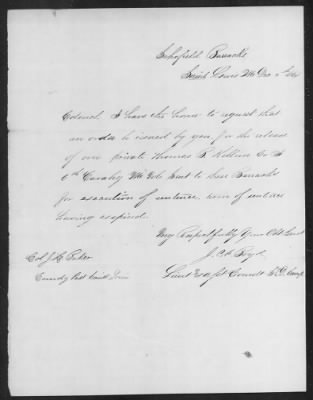 Schofield Barracks
Saint Louis Mo Dec
Colonel I have the honor to request that
an order be issued by you for the release
of one private Thomas B Co
6th Cavalry Mo Vols sent to these Barracks
for execution of sentence term of sentence
having expired.
Very Respectfully Your Obt Servt
Col J H Baker
Comndg Post Saint Louis
Lieut